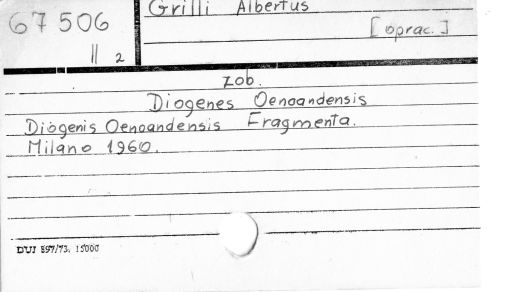 67506
II 2
Grilli Albertus
[oprac.]
zob.
Diogenes Oenoandensis
Diogenis Oenoandensis Fragmenta.
Milano 1960.
DUJ 897/73. 15000